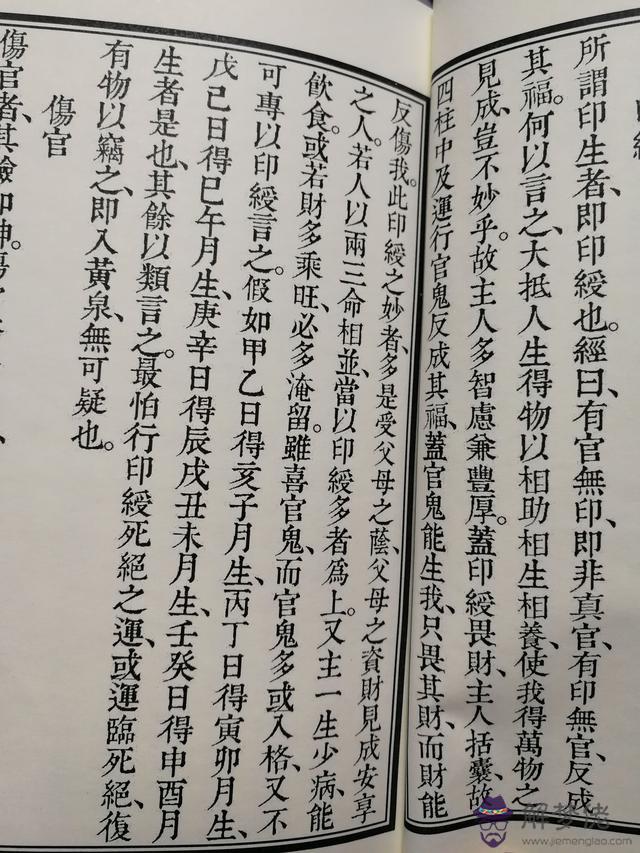 所謂印生者、即印綬也。經曰、有官無印、即非真官、有印無官、反成
其福。何以言之、大抵人生得物以相助相生相養、使我得萬物之
見成、豈不妙乎。故主人多智慮兼豐厚。蓋印綬畏財、主人括囊、故
四柱中及運行官鬼反成其福、蓋官鬼能生我、只畏其財、而財能
反傷我。此印綬之妙者、多是受父母之蔭、父母之資財見成安享
之人。若人以兩三命相並、當以印綬多者爲上。又主一生少病、能
飲食。或若財多乘旺、必多淹留。雖喜官鬼、而官鬼多或入格、又不
可專以印綬言之。假如甲乙日得亥子月生、丙丁日得寅卯月生、
戊己日得巳午月生、庚辛日得辰戌丑未月生、壬癸日得申酉月
生者是也、其餘以類言之。最怕行印綬死絕之運、或運臨死絕、復
有物以竊之、即入黃泉、無可疑也。
傷官
傷官者、其驗如神。
解梦佬
www.jiemenglao.com